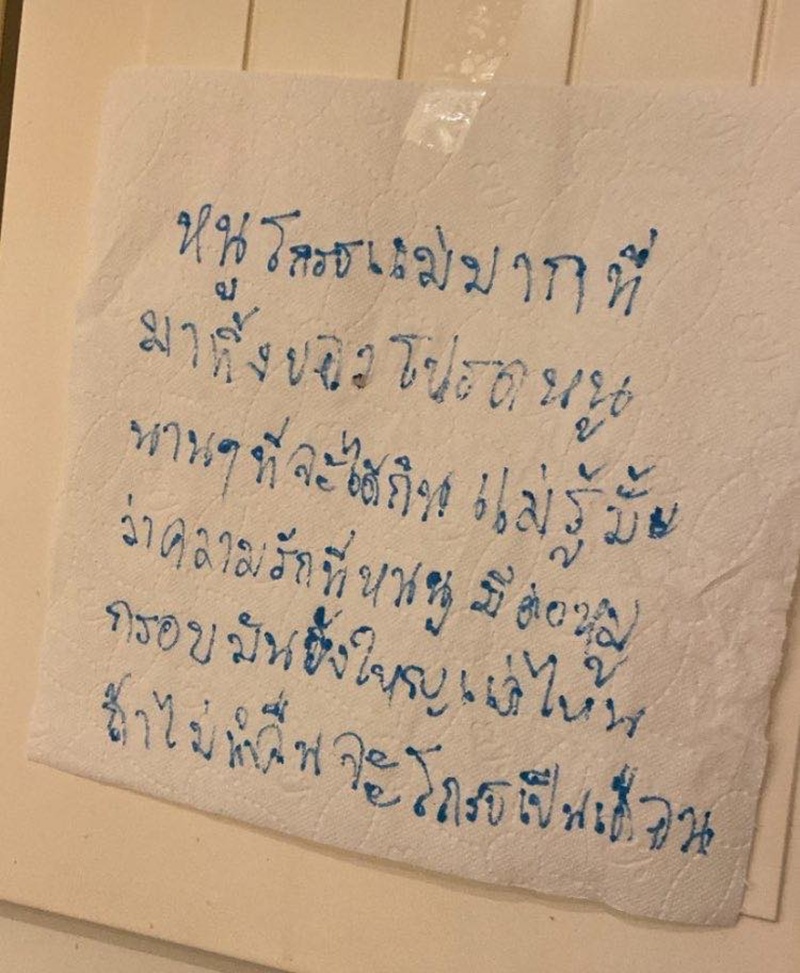 หนูโกรธแม่มากที่
มาทิ้งของโปรดหนู
นานๆที่จะได้กิน แม่รู้มั้ย
ว่าความรักที่หนูมี
กรอบมันยิ่งใหญ่แค่ไหน
ถ้าไม่ทำคืนจะโกรธเป็นเดือน